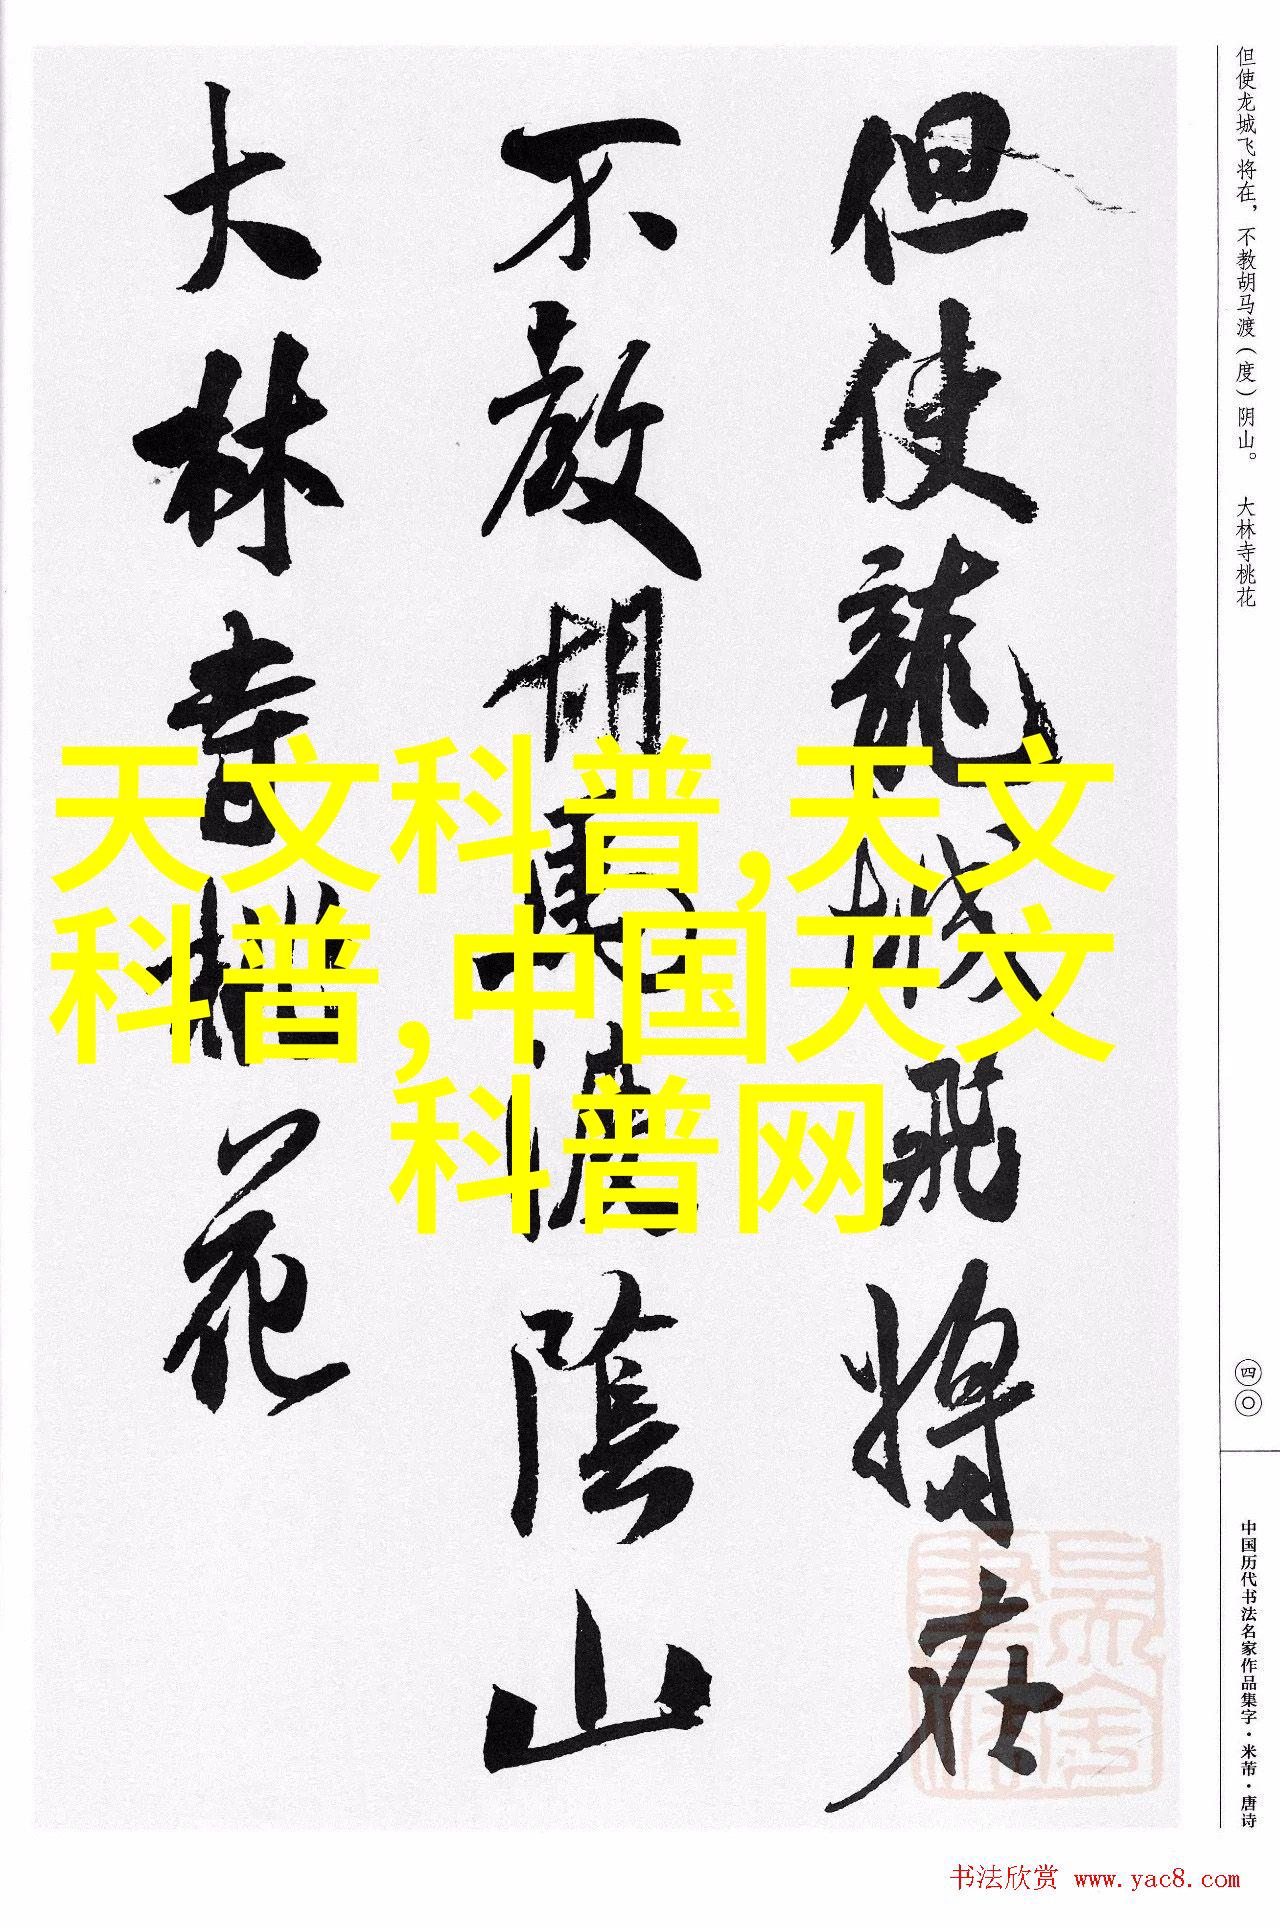 但使龙城飞将在，不教胡马渡（度）阴山。 大林寺桃花
但使龍城飛将在
不教胡馬渡陰山
大林寺桃花
天文科普,天文
科普,中国天文
科普网
四〇
中国历代书法名家作品集字·米芾·唐诗
书法欣赏 www.yac8.com